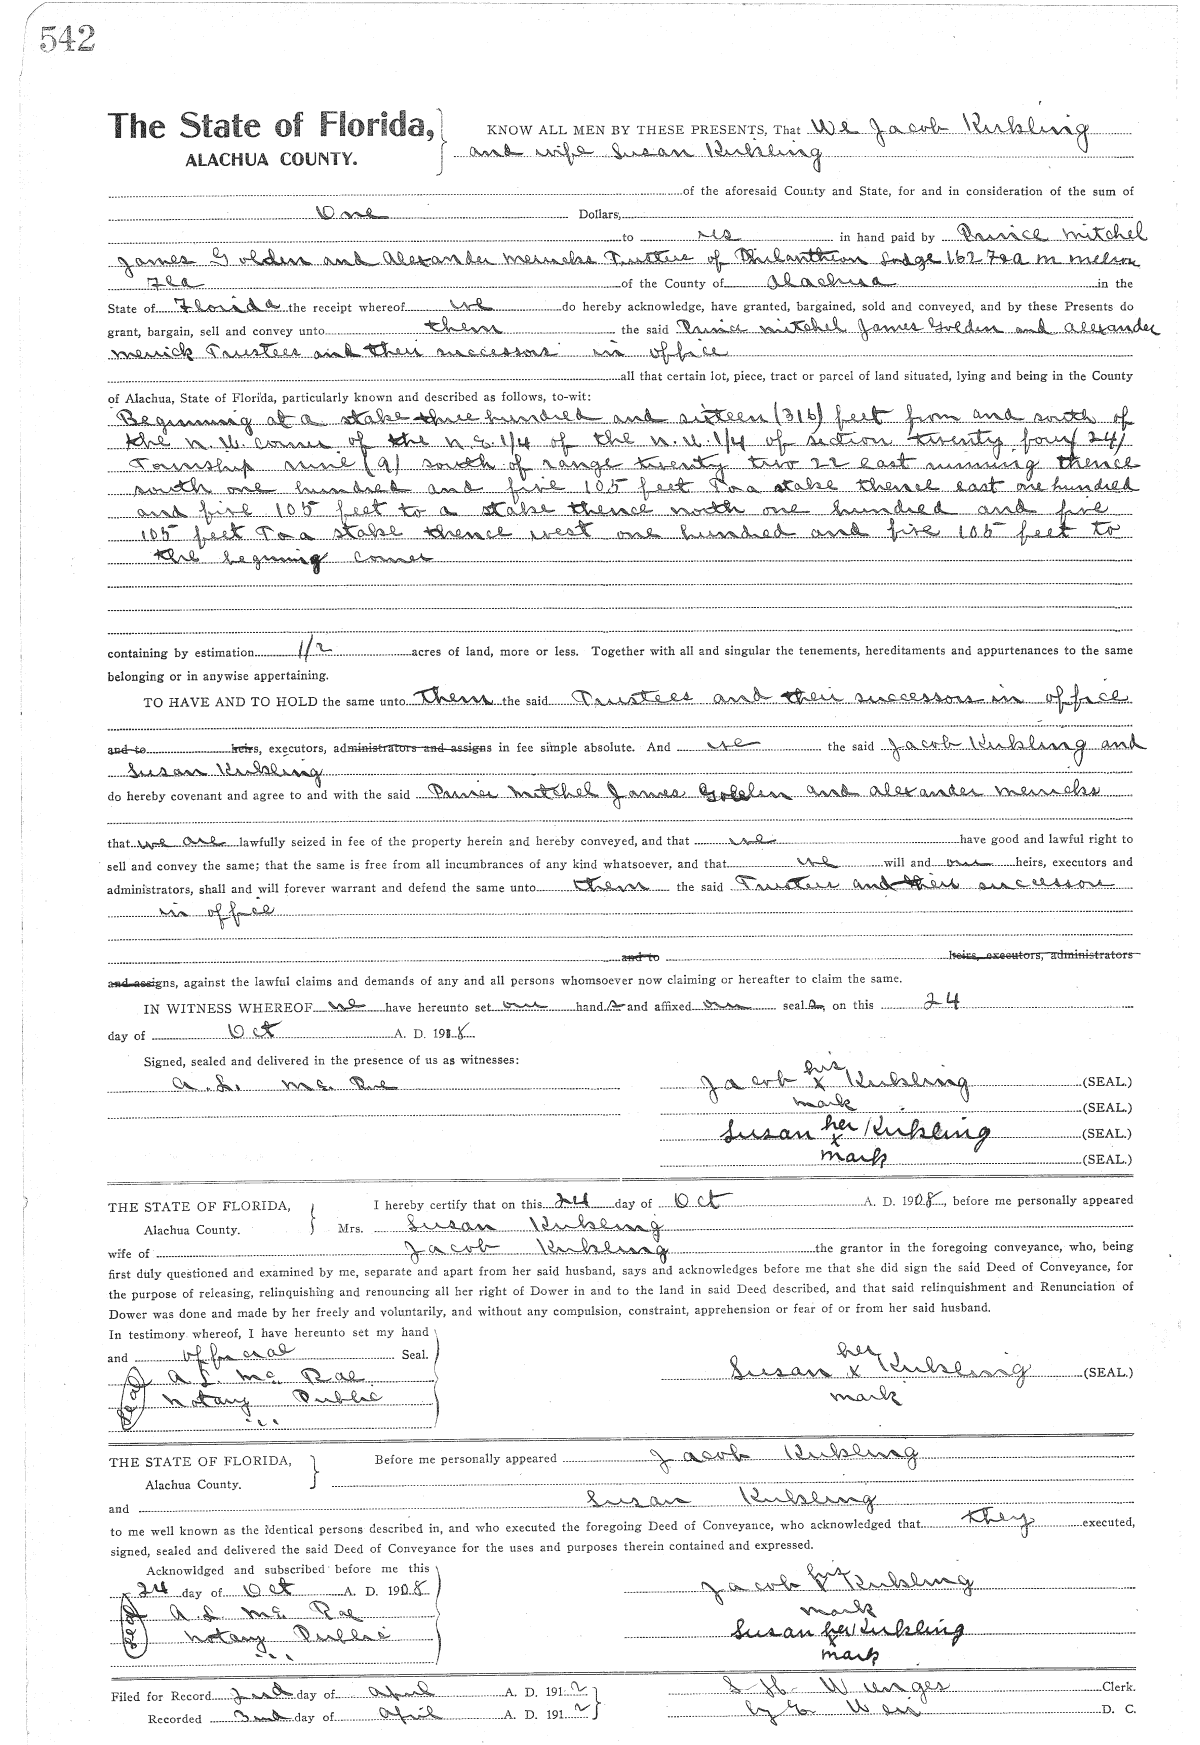 542
The State of Florida, KNOW ALL MEN BY THESE PRESENTS, That We Jacob Kubsling
ALACHUA COUNTY. and wife Susan Kubsling
of the aforesaid County and State, for and in consideration of the sum of
One Dollars,
to us in hand paid by Prince Mitchel
James Golden and Alexander Merricks Trustees of Philanthrom Lodge 162 F&A M
Fla of the County of Alachua in the
State of Florida the receipt whereof we do hereby acknowledge, have granted, bargained, sold and conveyed, and by these Presents do
grant, bargain, sell and convey unto them the said Prince Mitchel James Golden and Alexander
Merrick Trustees and their successors in office
all that certain lot, piece, tract or parcel of land situated, lying and being in the County
of Alachua, State of Florida, particularly known and described as follows, to-wit:
Beginning at a stake three hundred and sixteen (316) feet from and south of
the N.W. corner of the N.E. 1/4 of the N.W. 1/4 of section twenty four (24)
Township nine (9) south of range twenty two 22 east running thence
south one hundred and five 105 feet To a stake thence east one hundred
and five 105 feet to a stake thence north one hundred and five
105 feet To a stake thence west one hundred and five 105 feet to
the beginning corner
containing by estimation 1/2 acres of land, more or less. Together with all and singular the tenements, hereditaments and appurtenances to the same
belonging or in anywise appertaining.
TO HAVE AND TO HOLD the same unto them the said Trustees and their successors in office
and to heirs, executors, administrators and assigns in fee simple absolute. And we the said Jacob Kubsling and
Susan Kubsling
do hereby covenant and agree to and with the said Prince Mitchel James Golden and Alexander Merricks
that we are lawfully seized in fee of the property herein and hereby conveyed, and that we have good and lawful right to
sell and convey the same; that the same is free from all incumbrances of any kind whatsoever, and that we will and our heirs, executors and
administrators, shall and will forever warrant and defend the same unto them the said Trustees and their successors
in office
and to heirs, executors, administrators
and assigns, against the lawful claims and demands of any and all persons whomsoever now claiming or hereafter to claim the same.
IN WITNESS WHEREOF we have hereunto set our hand s and affixed our seal s, on this 24
day of Oct A. D. 1918
Signed, sealed and delivered in the presence of us as witnesses:
A. L. Mc Rae Jacob his x Kubsling (SEAL.)
mark (SEAL.)
Susan her x Kubsling (SEAL.)
mark (SEAL.)
THE STATE OF FLORIDA, I hereby certify that on this 24 day of Oct A. D. 1908, before me personally appeared
Alachua County. Mrs. Susan Kubsling
wife of Jacob Kubsling the grantor in the foregoing conveyance, who, being
first duly questioned and examined by me, separate and apart from her said husband, says and acknowledges before me that she did sign the said Deed of Conveyance, for
the purpose of releasing, relinquishing and renouncing all her right of Dower in and to the land in said Deed described, and that said relinquishment and Renunciation of
Dower was done and made by her freely and voluntarily, and without any compulsion, constraint, apprehension or fear of or from her said husband.
In testimony whereof, I have hereunto set my hand
and official Seal.
Seal A L Mc Rae Susan her x Kubsling (SEAL.)
Notary Public mark
THE STATE OF FLORIDA, Before me personally appeared Jacob Kubsling
Alachua County.
and Susan Kubsling
to me well known as the identical persons described in, and who executed the foregoing Deed of Conveyance, who acknowledged that they executed,
signed, sealed and delivered the said Deed of Conveyance for the uses and purposes therein contained and expressed.
Acknowldged and subscribed before me this
24 day of Oct A. D. 1908 Jacob his x Kubsling
Seal A L Mc Rae mark
Notary Public Susan her x Kubsling
mark
Filed for Record 2nd day of April A. D. 1912 S H Wienges Clerk.
Recorded 3nd day of April A. D. 1912 by E Weir D. C.